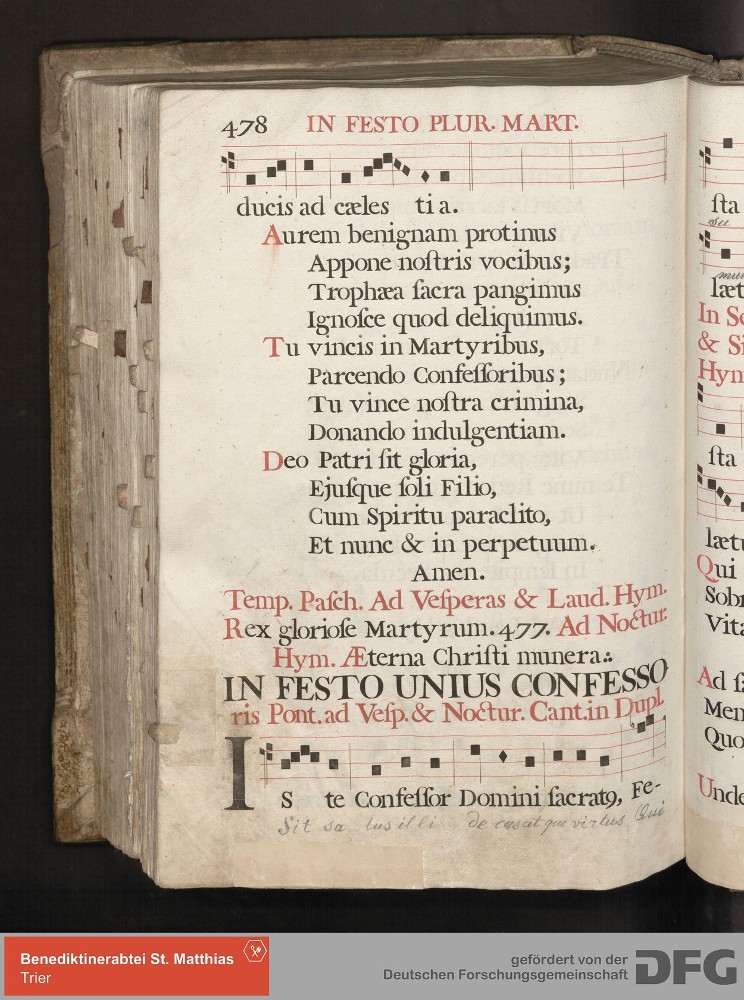 478 IN FESTO PLUR. MART.
ducis ad cæles ti a.
Aurem benignam protinus
Appone noſtris vocibus;
Trophæa ſacra pangimus
Ignoſce quod deliquimus.
Tu vincis in Martyribus,
Parcendo Confeſſoribus;
Tu vince noſtra crimina,
Donando indulgentiam.
Deo Patri ſit gloria,
Ejuſque ſoli Filio,
Cum Spiritu paraclito,
Et nunc & in perpetuum.
Amen.
Temp. Paſch. Ad Veſperas & Laud. Hym.
Rex glorioſe Martyrum. 477. Ad Noctur.
Hym. Æterna Chriſti munera.
IN FESTO UNIUS CONFESSO
ris Pont. ad Veſp. & Noctur. Cant. in Dupl.
IS te Confeſſor Domini ſacratꝯ, Fe-
Sit sa lus illi de cus atque virtus Qui
ſta
læt
In
& Si
Hym
ſta
lætu
Qui
Sobr
Vita
Ad
Men
Quo
Unde
Benediktinerabtei St. Matthias
Trier
gefördert von der
Deutschen Forschungsgemeinschaft
DFG